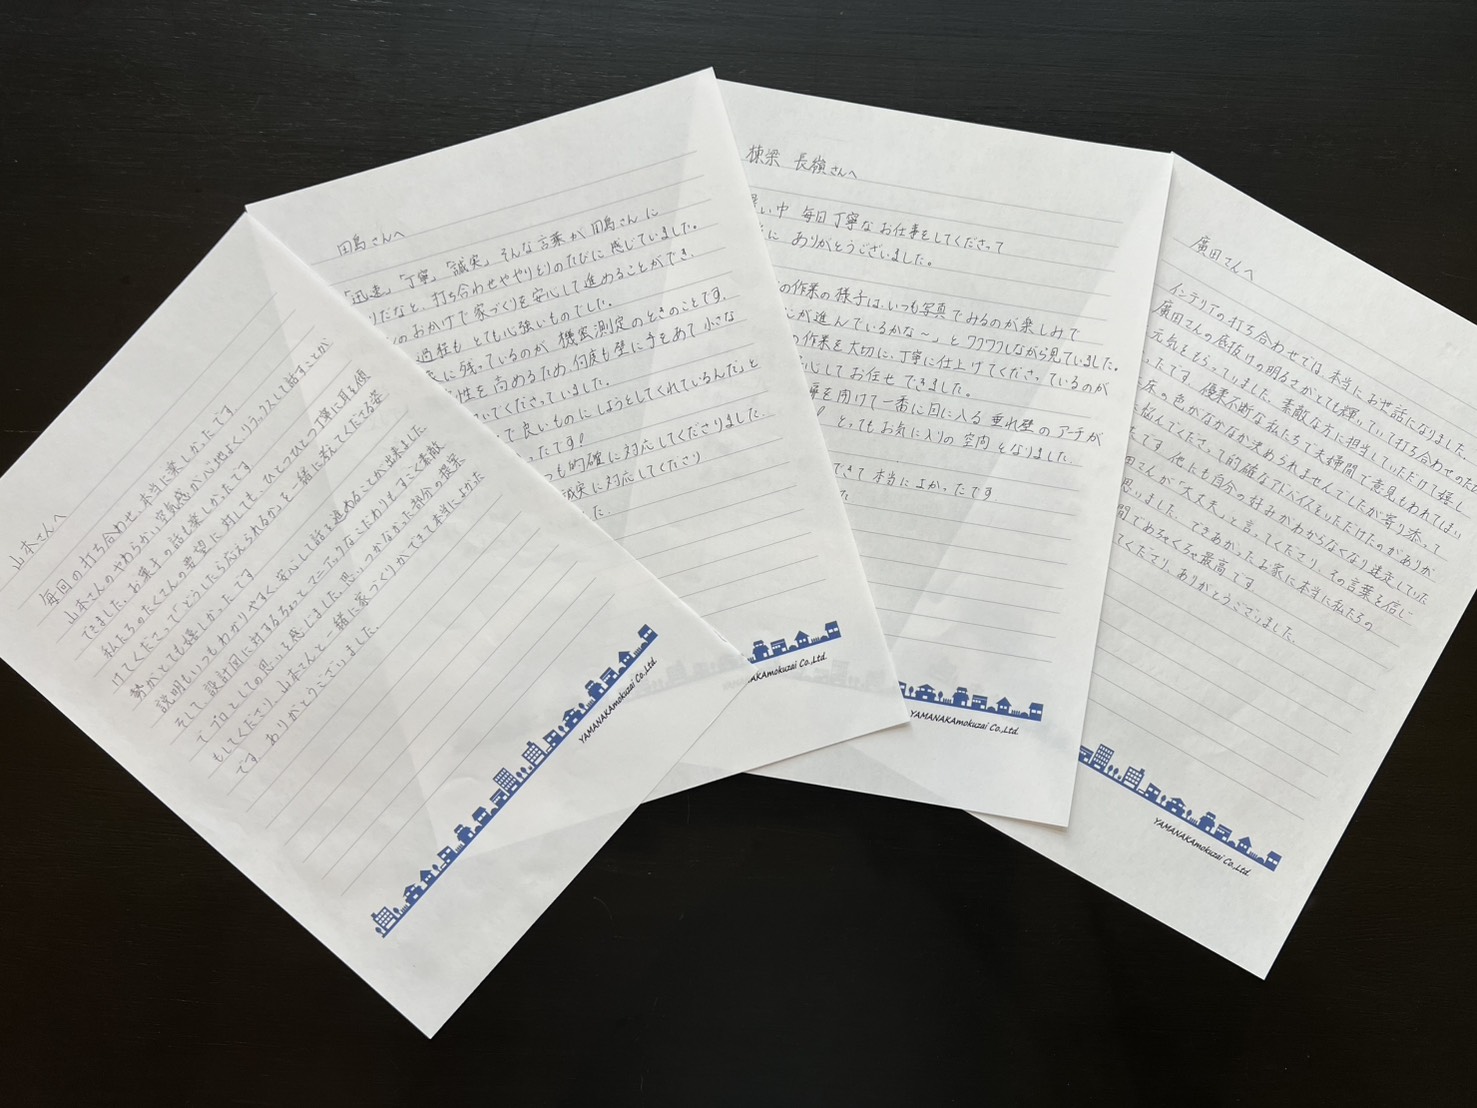 山本さんへ
毎回の打ち合わせ、本当に楽しかったです。
山本さんのやわらかい空気感が心地よくリラックスして話すことが
できました。お菓子の話も楽しかったです。
私たちのたくさんの希望に対しても、ひとつひとつ丁寧に耳を傾
けてくださって「どうしたら応えられるか」を一緒に考えてくださる姿
勢がとても嬉しかったです。
説明もいつもわかりやすく安心して話を進めることが出来ました。
そして、設計図に対するちょっとマニアックなこだわりもすごく素敵
で プロとしての思いを感じました。思いつかなかった部分の提案
もしてくださり、山本さんと一緒に家づくりができて本当によかった
です。ありがとうございました。
YAMANAKAmokuzai Co.,Ltd.
田島さんへ
「迅速」「丁寧」「誠実」そんな言葉が田島さんに
りだなと、打ち合わせややりとりのたびに感じていました。
のおかげで家づくりを安心して進めることができ、
過程もとても心強いものでした。
に残っているのが機密測定のときのことです。
性を高めるため、何度も壁に手をあて小さな
いてくださっていました。
って良いものにしようとしてくれているんだ」と
ったです!
つも的確に対応してくださりました。
誠実に対応してくださり
した.
AKAmokuzai Co.,Ltd.
棟梁 長嶺さんへ
暑い中 毎日丁寧なお仕事をしてくださって
に ありがとうございました。
の作業の様子は、いつも写真でみるのが楽しみで
こが進んでいるかな〜」とワクワクしながら見ていました。
の作業を大切に、丁寧に仕上げてくださっているのが
心してお任せできました。
扉を開けて一番に目に入る垂れ壁のアーチが
! とってもお気に入りの空間となりました.
できて本当によかったです.
た
YAMANAKAmokuzai Co.,Ltd.
廣田さんへ
インテリアの打ち合わせでは、本当にお世話になりました。
廣田さんの底抜けの明るさがとても輝いていて打ち合わせのたび
元気をもらっていました。素敵な方に担当していただけて嬉し
ったです。優柔不断な私たちで夫婦間で意見もわれてしまい
床の色がなかなか決められませんでしたが寄り添って
悩んでくださって的確なアドバイスをいただけたのがありが
たです。他にも自分の好みがわからなくなり迷走していた
田さんが「大丈夫」と言ってくださり、その言葉を信じ
思いました。できあがったお家に本当に私たちの
間でめちゃくちゃ最高です
てくださり、ありがとうございました.
YAMANAKAmokuzai Co.,Ltd.